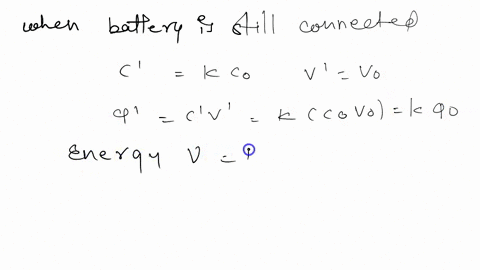 when battery is still connected
C' = k C0 V' = V0
φ' = C'V' = k (C0 V0) = k φ0
Energy V =